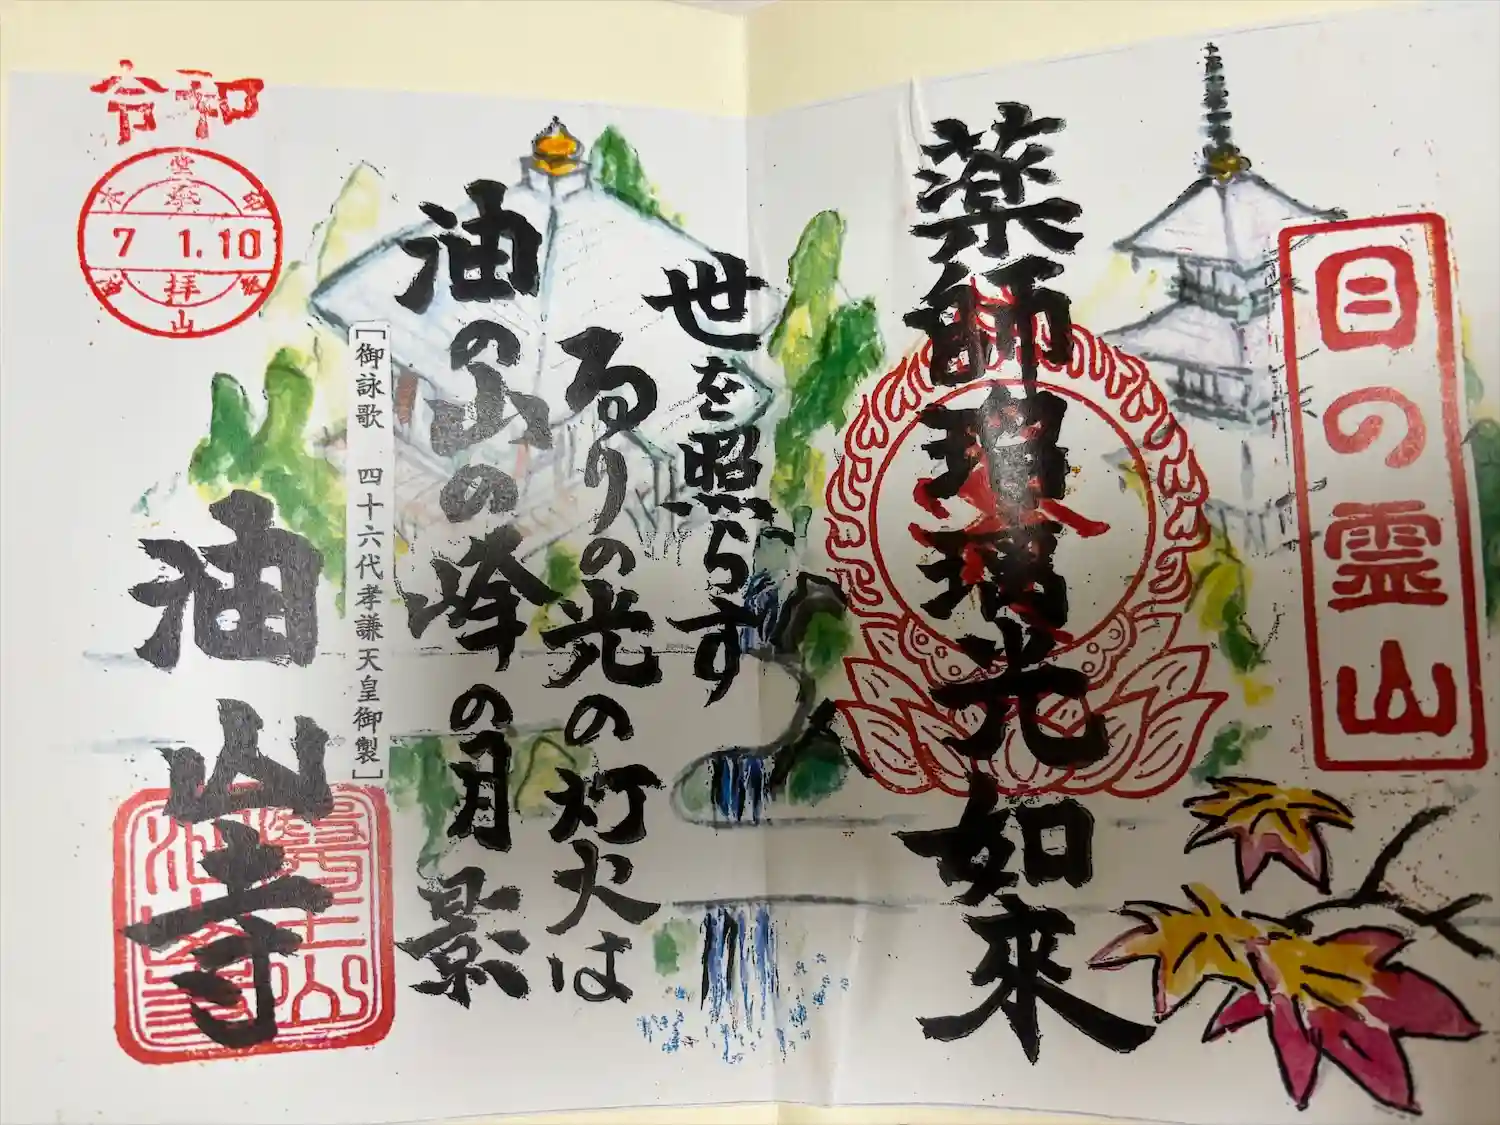 目の霊山
薬師瑠璃光如來
世を照らす
るりの光の灯火は
油の山の峰の月影
[御詠歌 四十六代孝謙天皇御製]
油山寺
醫王山
油山寺
令和
7 1.10
拝
山